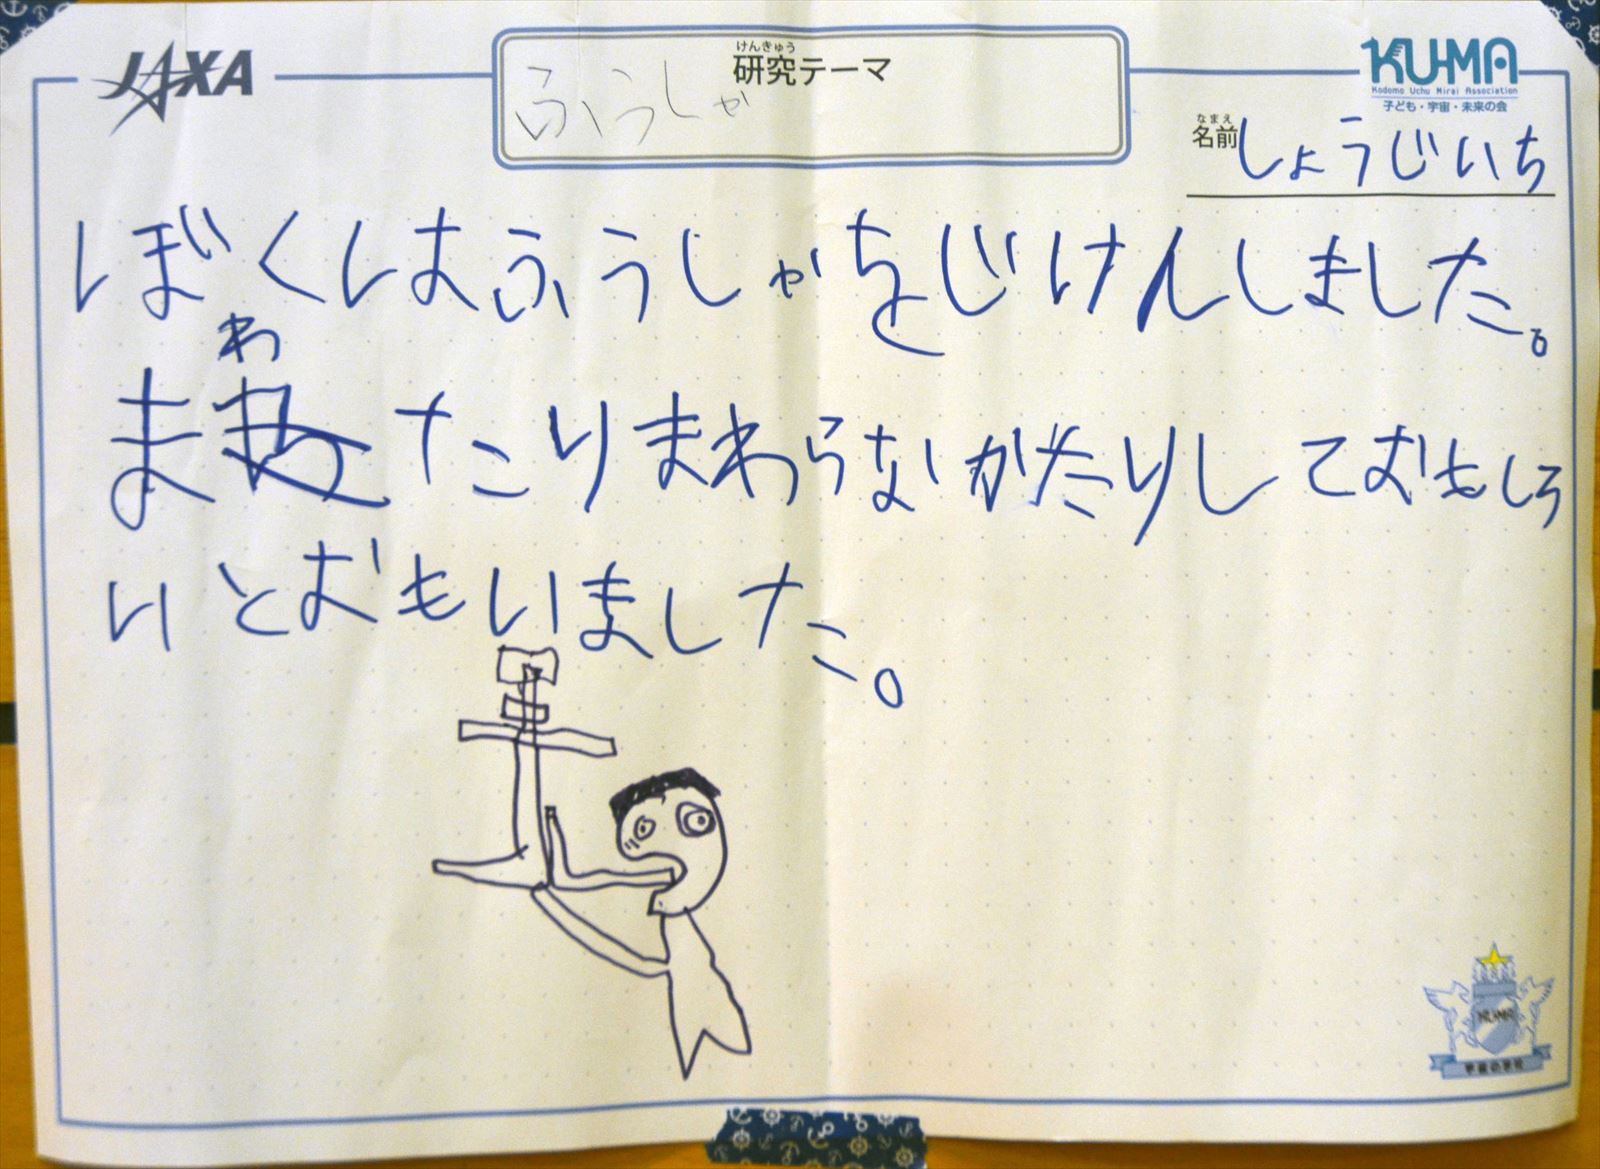 JAXA
けんきゅう
研究テーマ
ふうしゃ
KU-MA
Kodomo Uchu Mirai Association
子ども・宇宙・未来の会
なまえ
名前 しょうじいち
ぼくはふうしゃをじけんしました。
わ
またりまわらながたりしておもしろ
いとおもいました。
KU-MA
宇宙の学校